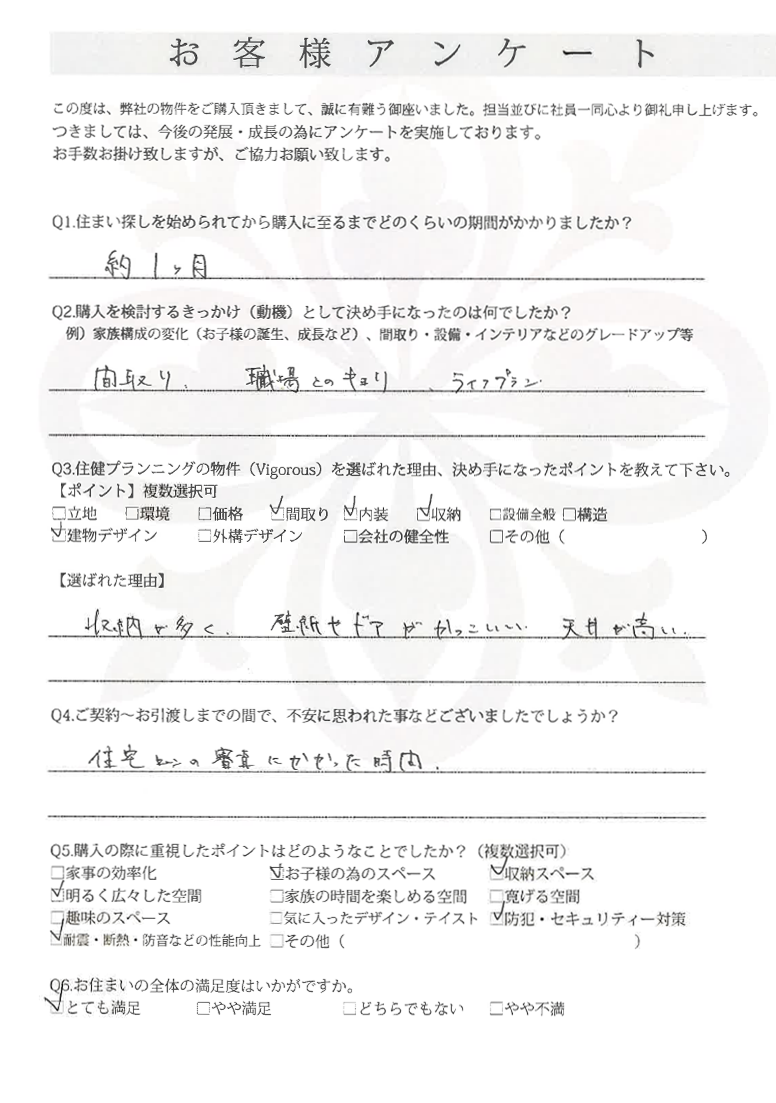 お客様アンケート
この度は、弊社の物件をご購入頂きまして、誠に有難う御座いました。担当並びに社員一同心より御礼申し上げます。
つきましては、今後の発展・成長の為にアンケートを実施しております。
お手数お掛け致しますが、ご協力お願い致します。
Q1.住まい探しを始められてから購入に至るまでどのくらいの期間がかかりましたか？
約1ヶ月
Q2.購入を検討するきっかけ（動機）として決め手になったのは何でしたか？
例）家族構成の変化（お子様の誕生、成長など）、間取り・設備・インテリアなどのグレードアップ等
間取り、 職場とのキョリ 、ライフプラン
Q3.住健プランニングの物件（Vigorous）を選ばれた理由、決め手になったポイントを教えて下さい。
【ポイント】複数選択可
□立地 □環境 □価格 ☑間取り ☑内装 ☑収納 □設備全般 □構造
☑建物デザイン □外構デザイン □会社の健全性 □その他（ ）
【選ばれた理由】
収納が多く、 壁紙やドアがかっこいい 天井が高い。
Q4.ご契約～お引渡しまでの間で、不安に思われた事などございましたでしょうか？
住宅ローンの審査にかかった時間。
Q5.購入の際に重視したポイントはどのようなことでしたか？（複数選択可）
□家事の効率化 ☑お子様の為のスペース ☑収納スペース
☑明るく広々した空間 □家族の時間を楽しめる空間 □寛げる空間
□趣味のスペース □気に入ったデザイン・テイスト ☑防犯・セキュリティー対策
☑耐震・断熱・防音などの性能向上 □その他（ ）
Q6.お住まいの全体の満足度はいかがですか。
☑とても満足 □やや満足 □どちらでもない □やや不満